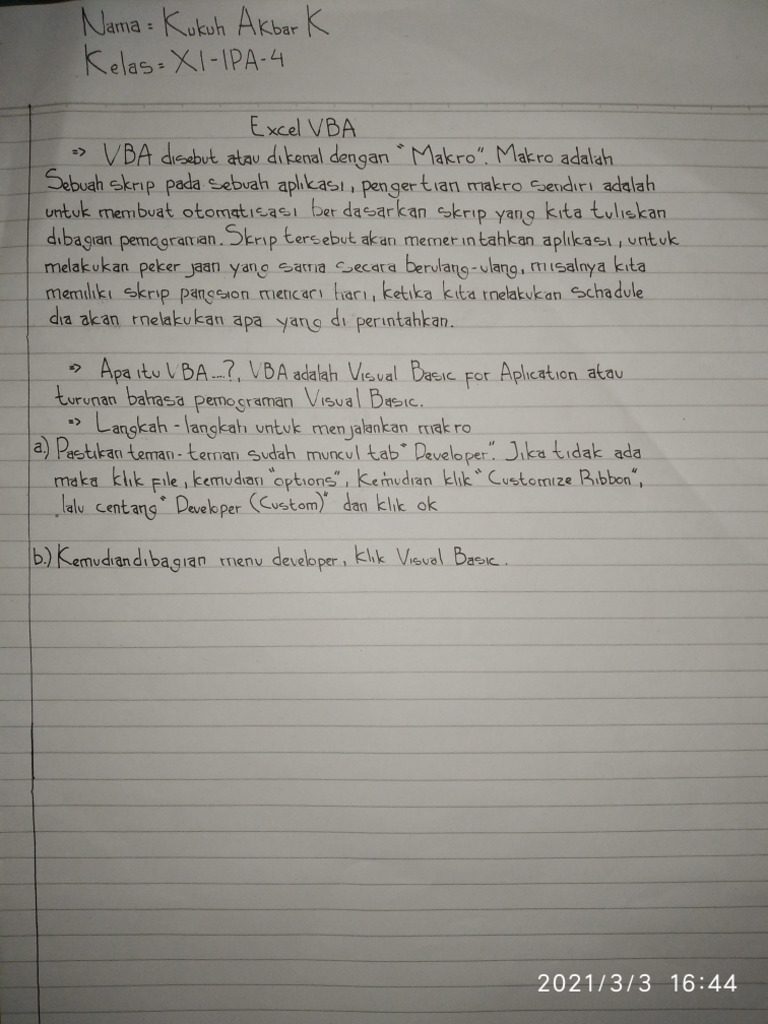 Nama = Kukuh Akbar K
Kelas = XI-IPA-4
Excel VBA
=> VBA disebut atau dikenal dengan "Makro". Makro adalah
Sebuah skrip pada sebuah aplikasi, pengertian makro sendiri adalah
untuk membuat otomatisasi berdasarkan skrip yang kita tuliskan
dibagian pemograman. Skrip tersebut akan memerintahkan aplikasi, untuk
melakukan pekerjaan yang sama secara berulang-ulang, misalnya kita
memiliki skrip pangsion mencari hari, ketika kita melakukan schadule
dia akan melakukan apa yang di perintahkan.
=> Apa itu VBA....?, VBA adalah Visual Basic for Aplication atau
turunan bahasa pemograman Visual Basic.
=> Langkah-langkah untuk menjalankan makro
a.) Pastikan teman-teman sudah muncul tab "Developer". Jika tidak ada
maka klik file, kemudian "options", Kemudian klik "Customize Ribbon",
lalu centang "Developer (Custom)" dan klik ok
b.) Kemudian dibagian menu developer, klik Visual Basic.
2021/3/3 16:44